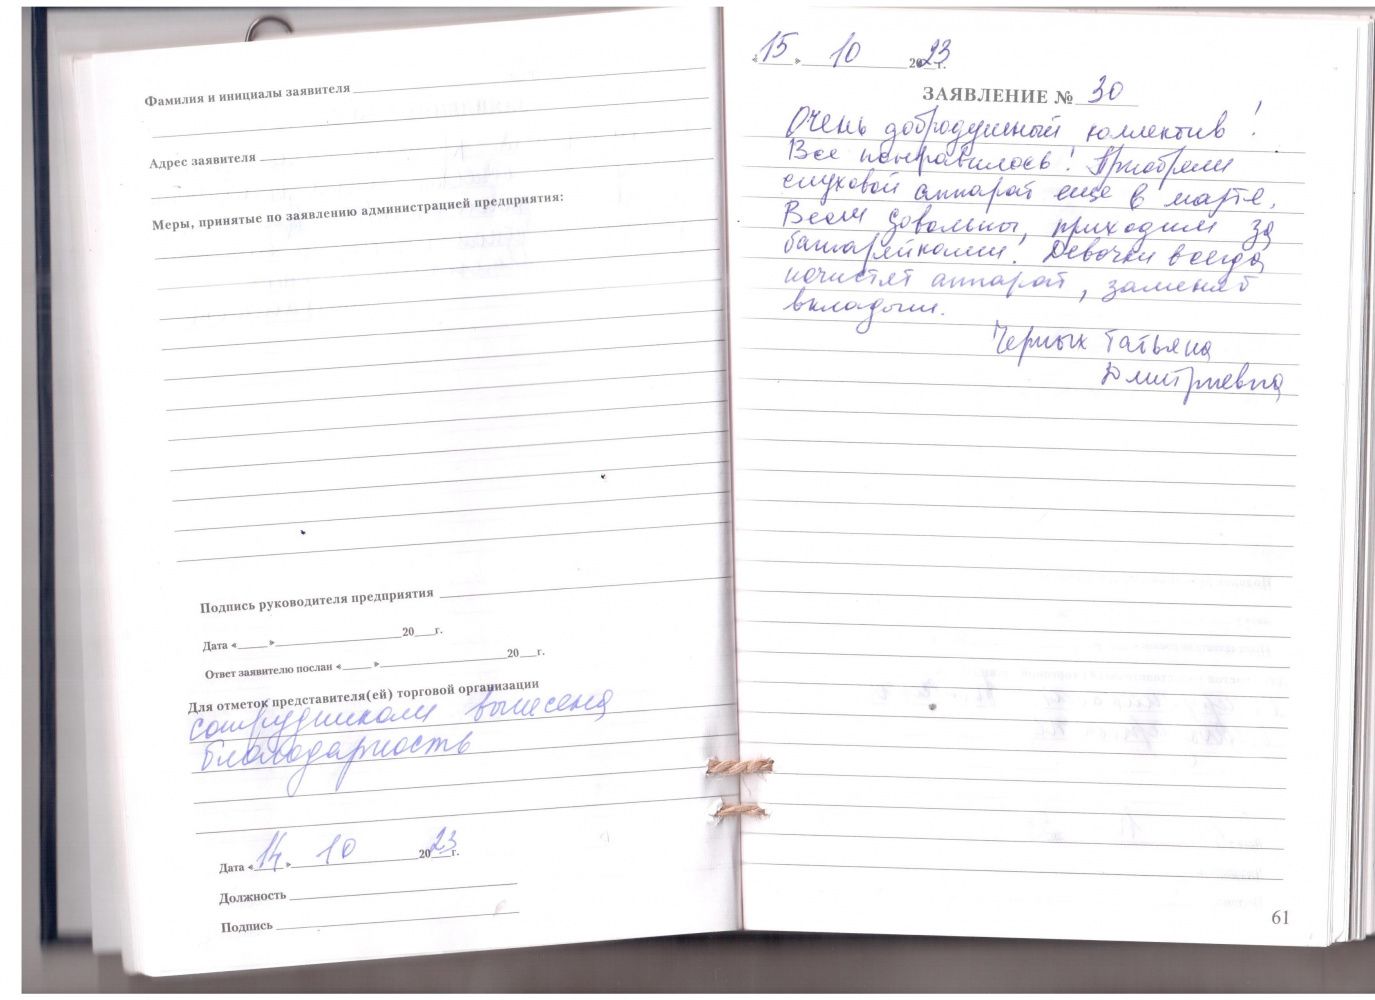 Фамилия и инициалы заявителя
Адрес заявителя
Меры, принятые по заявлению администрацией предприятия:
Подпись руководителя предприятия
Дата « » 20 г.
Ответ заявителю послан « » 20 г.
Для отметок представителя(ей) торговой организации
сотрудникам вынесена
благодарность
Дата «14» 10 2023 г.
Должность
Подпись
«15» 10 2023 г.
ЗАЯВЛЕНИЕ № 30
Очень добродушный коллектив!
Все понравилось! Приобрели
слуховой аппарат еще в марте.
Всем довольны, приходим за
батарейками! Девочки всегда
почистят аппарат, заменят
вкладыш.
Черных Татьяна
Дмитриевна
61